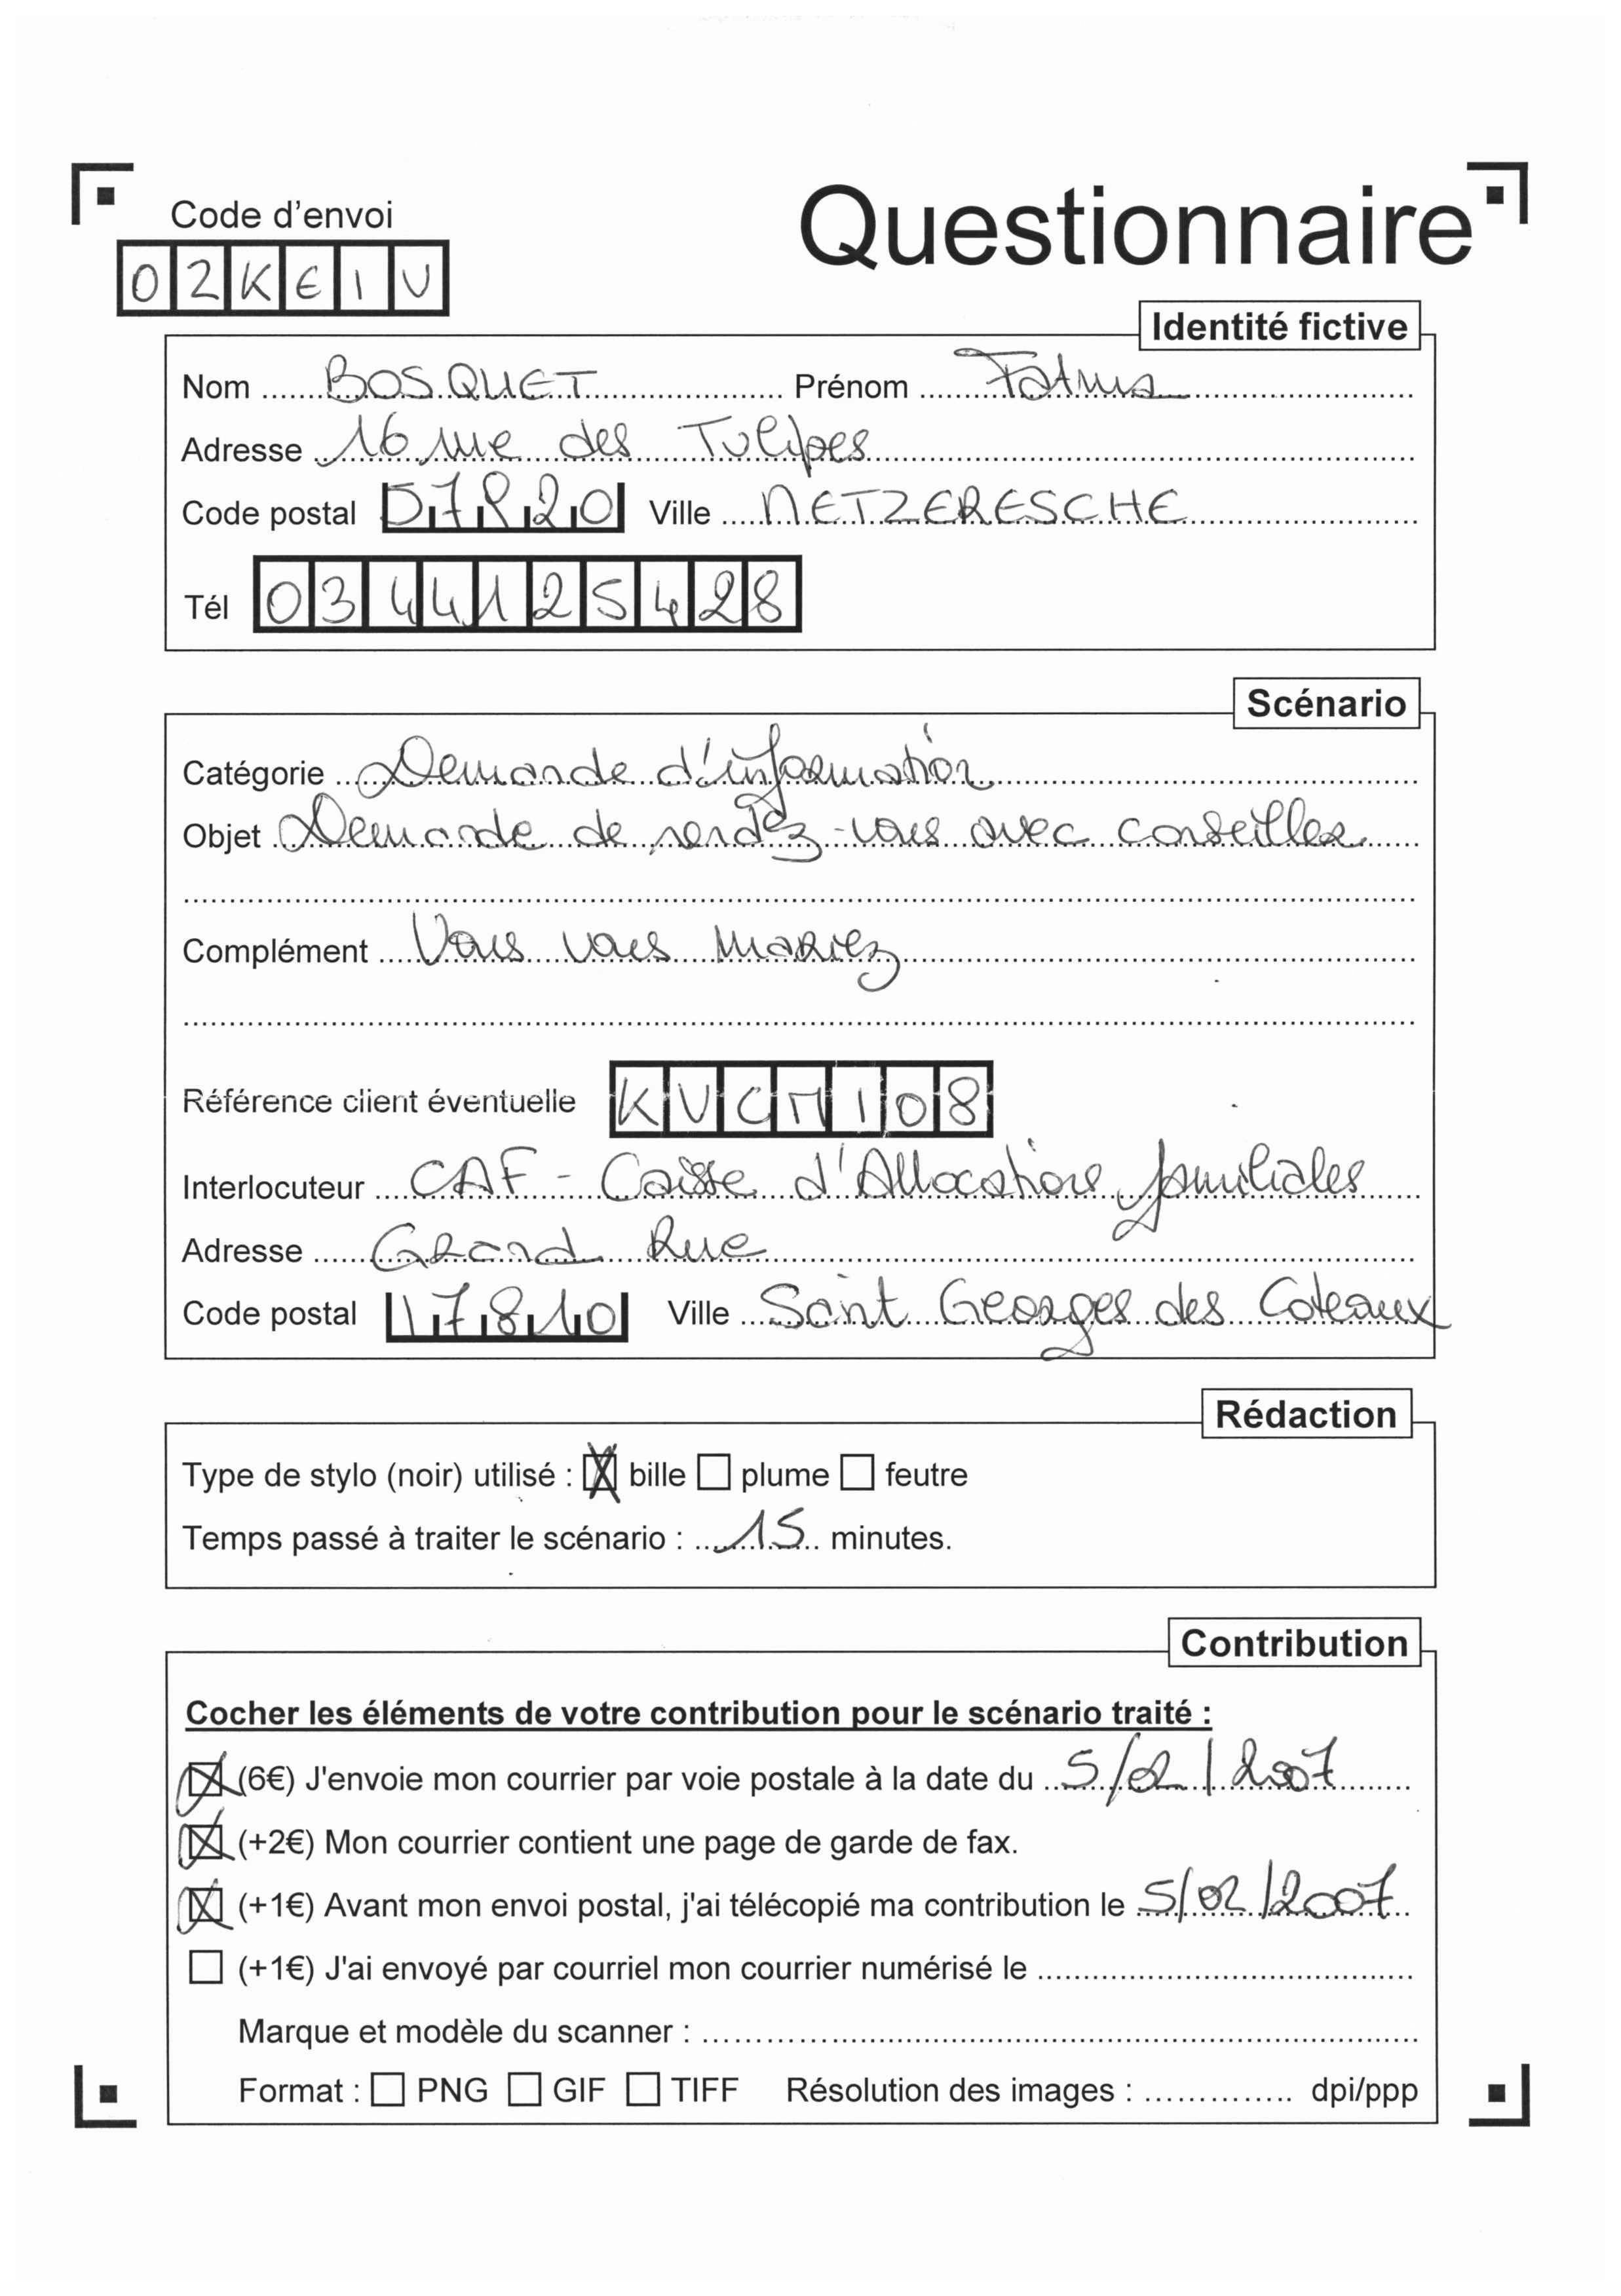 Questionnaire
Code d'envoi
02KE1U
Identité fictive
Nom BOSQUET Prénom Fatma
Adresse 16 rue des Tulipes
Code postal 57820 Ville METZERESCHE
Tél 0344125428
Scénario
Catégorie Demande d'information
Objet Demande de rendez-vous avec conseiller
Complément Vous vous mariez
Référence client éventuelle KVCM108
Interlocuteur CAF - Caisse d'Allocations familiales
Adresse Grand Rue
Code postal 17810 Ville Saint Georges des Coteaux
Rédaction
Type de stylo (noir) utilisé : ☒ bille ☐ plume ☐ feutre
Temps passé à traiter le scénario : 15 minutes.
Contribution
Cocher les éléments de votre contribution pour le scénario traité :
☒ (6€) J'envoie mon courrier par voie postale à la date du 5/02/2007
☒ (+2€) Mon courrier contient une page de garde de fax.
☒ (+1€) Avant mon envoi postal, j'ai télécopié ma contribution le 5/02/2007
☐ (+1€) J'ai envoyé par courriel mon courrier numérisé le
Marque et modèle du scanner :
Format : ☐ PNG ☐ GIF ☐ TIFF Résolution des images : dpi/ppp